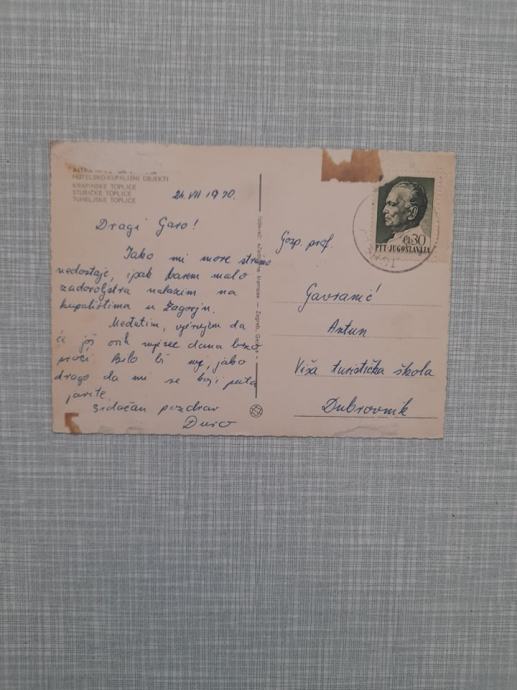 HOTELSKO-KUPALIŠNI OBJEKTI
KRAPINSKE TOPLICE
STUBIČKE TOPLICE
TUHELJSKE TOPLICE
24 VII 1970.
Dragi Garo!
Iako mi more strašno
nedostaje, ipak barem malo
zadovoljstva nalazim na
kupalištima u Zagorju.
Međutim, vjerujem da
će još ovih mjesec dana brzo
proći. Bilo bi mi, jako
drago da mi se koji puta
javite.
Srdačan pozdrav
Đuro
Gosp. prof.
Gavranić
Antun
Viša turistička škola
Dubrovnik
0,30
PTT-JUGOSLAVIJA